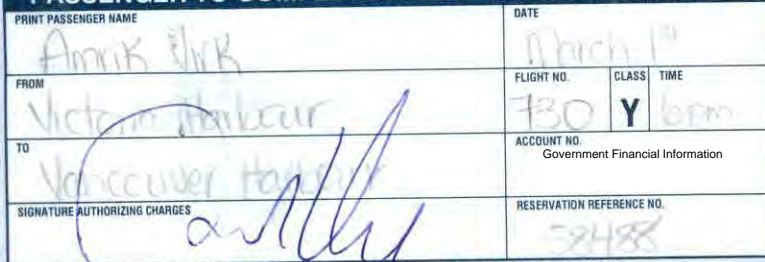 PRINT PASSENGER NAME
Amrik Virk
DATE
March 1st
FROM
Victoria Harbour
FLIGHT NO.
730
CLASS
Y
TIME
6pm
TO
Vancouver Harbour
ACCOUNT NO.
Government Financial Information
SIGNATURE AUTHORIZING CHARGES
RESERVATION REFERENCE NO.